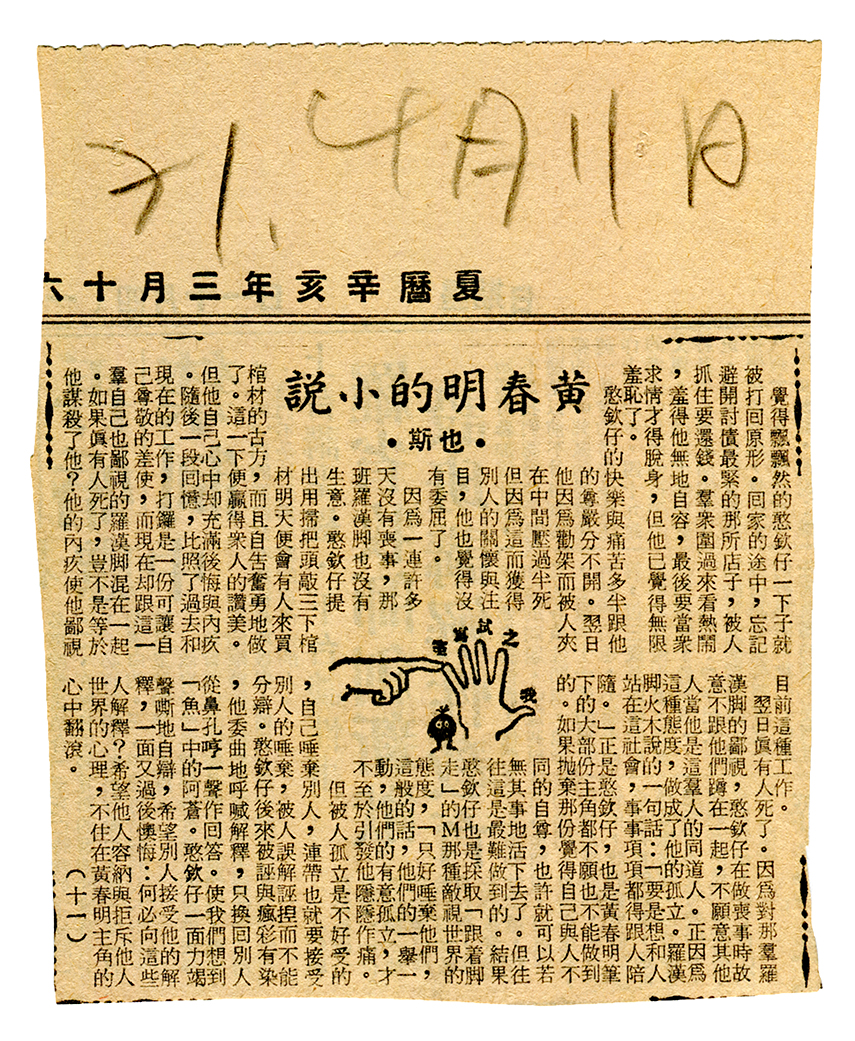 71. 4月11日
夏曆辛亥年三月十六
黃春明的小說
・也斯・
覺得飄飄然的憨欽仔一下子就
被打回原形。回家的途中,忘記
避開討債最緊的那所店子,被人
抓住要還錢。羣衆圍過來看熱鬧
,羞得他無地自容,最後要當衆
求情才得脫身,但他已覺得無限
羞恥了。
憨欽仔的快樂與痛苦多半跟他
的尊嚴分不開。翌日
他因爲勸架而被人夾
在中間壓過半死
但因爲這而獲得
別人的關懷與注
目,他也覺得沒
有委屈了。
因爲一連許多
天沒有喪事,那
班羅漢脚也沒有
生意。憨欽仔提
出用掃把頭敲三下棺
材明天便會有人來買
棺材的古方,而且自告奮勇地做
了。這一下便贏得衆人的讚美。
但他自己心中却充滿後悔與內疚
。隨後一段回憶,比照了過去和
現在的工作,打鑼是一份可讓自
己尊敬的差使,而現在却跟這一
羣自己也鄙視的羅漢脚混在一起
。如果眞有人死了,豈不是等於
他謀殺了他?他的內疚使他鄙視
目前這種工作。
翌日眞有人死了。因爲對那羣羅
漢脚的鄙視,憨欽仔在做喪事時故
意不跟他們蹲在一起,不願意其他
人當他是這羣人的同道人。正因爲
這種態度,做成了他的孤立。羅漢
脚火木說的一句話:「要是想和人
站在這社會,事事項項都得跟人陪
隨。」正是憨欽仔,也是黃春明筆
下的大部份主角都不願也不能做到
的。如果抛棄那份覺得自己與人不
同的自尊,也許就可以若
無其事地活下去了。但往
往這是最難做到的。結果
憨欽仔也是採取「跟着脚
走」的M那種敵視世界的
態度,「只好唾棄他們,
這般的話,他們的一舉一
動,他們的有意孤立,才
不至於引發他隱隱作痛。
但被人孤立是不好受的
,自己唾棄別人,連帶也就要接受
別人的唾棄,被人誤解誣揑而不能
分辯。憨欽仔後來被誣與瘋彩有染
,他委曲地呼喊解釋,只換回別人
從鼻孔哼一聲作回答。使我們想到
「魚」中的阿蒼。憨欽仔一面力竭
聲嘶地自辯,希望別人接受他的解
釋,一面又過後懊悔:何必向這些
人解釋?希望他人容納與拒斥他人
世界的心理,不住在黃春明主角的
心中翻滾。 (十一)
我之試寫室